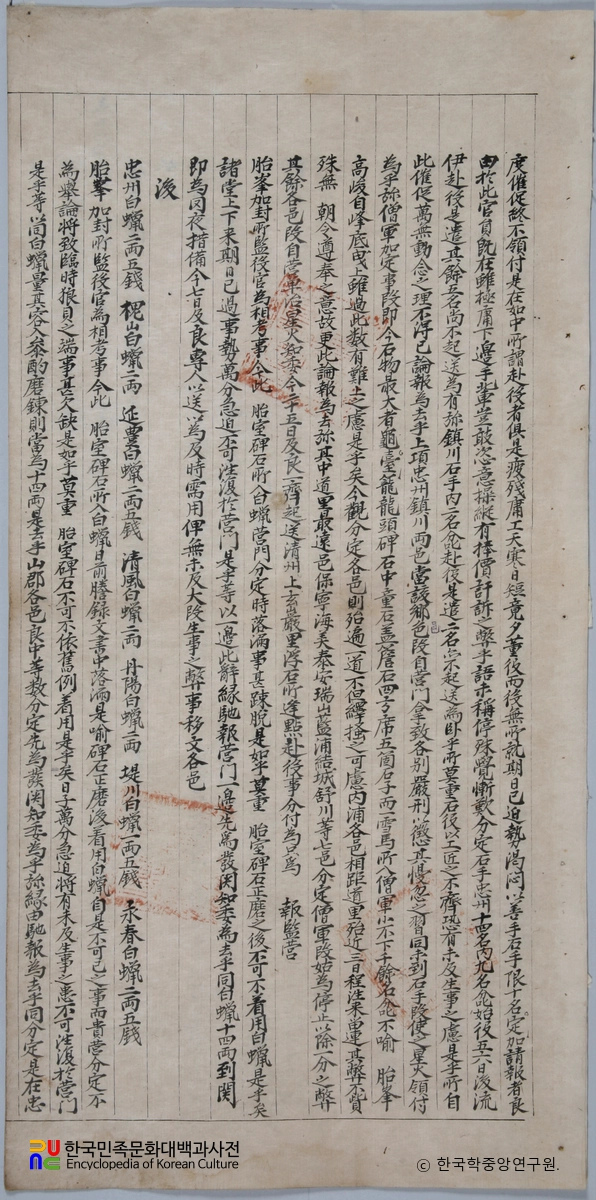 度催促終不領付是在如中所謂赴役者俱是疲殘庸工天寒日短竟夕董役而後無所就期日已迫勢渴悶以善手石手限十名定加請報者良
由於此官員旣在雖極庸下邊手北軍豈敢恣意操縱有捧價訐訴之弊乎語未稱停殊覺慚歎分定石手忠州十四名內九名叱始役五六日後流
伊赴役是遣其餘五名尚不起送爲有旀鎭川石手內一名叱赴役是遣二名不起送爲臥乎所莫重石役以工匠之不齊恐有未及生事之慮是乎所自
此催促萬無動念之理不得已論報爲去乎上項忠州鎭川兩邑當該鄕色段自營門拿致各別嚴刑以徵其慢忽之習同未到石手段使之星火領付
爲乎旀僧軍加定事段卽今石物最大者龜臺籠龍頭碑石中童石盖簷石四方席五箇石子而一雪馬所入僧軍小不下千餘名叱不喩 胎峯
高峻自峰底曳上雖過此數有難上之慮是乎矣今觀分定各邑則殆遍一道不但繹搔之可慮內浦各邑相距道里殆近三日程往來留連其弊不貲
殊無 朝令遵奉之意故更此論報爲去旀其中道里最遠邑保寧海美泰安瑞山藍浦結城舒川等七邑分定僧軍段姑爲停止以除一分之弊
其餘各邑段自營軍官星火知委今二十五日及良一齊起送淸州上玄巖里浮石所逢點赴役事分付爲只爲 報監營
胎峯加封所監役官爲相考事今此 胎室碑石所入白蠟營門分定時落漏事甚踈脫是如乎莫重 胎室碑石正磨之後不可不着用白蠟是乎矣
諸堂上下來期日已過事勢萬分急迫不可往復於營門是乎等以一邊此辭緣馳報營門一邊先爲發関知委爲去乎同白蠟十四兩到関
卽爲罔夜措備今七日及良專人以送以爲及時需用俾無未及大段生事之弊事移文各邑
後
忠州白蠟二兩五錢 槐山白蠟二兩 延豊白蠟一兩五錢 淸風白蠟二兩 丹陽白蠟二兩 堤川白蠟一兩五錢 永春白蠟二兩五錢
胎峯 加封所監役官爲相考事今此 胎室碑石所入白蠟日前謄錄文書中落漏是喩碑石正磨後着用白蠟自是不可已之事而貴營分定不
爲擧論將致臨時狼貝之端事甚欠缺是如乎莫重 胎室碑石不可不依舊例着用是乎矣日子萬分急迫將有未及生事之患不可往復於營門
是乎等以同白蠟量其容入參酌磨鍊則當爲十四兩是去乎山郡各邑良中等數分定先爲發関知委爲乎旀緣由馳報爲去乎同分定是在忠
한국민족문화대백과사전
Encyclopedia of Korean Culture
ⓒ 한국학중앙연구원.